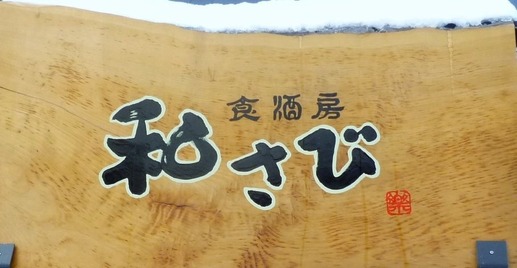 食酒房
和さび